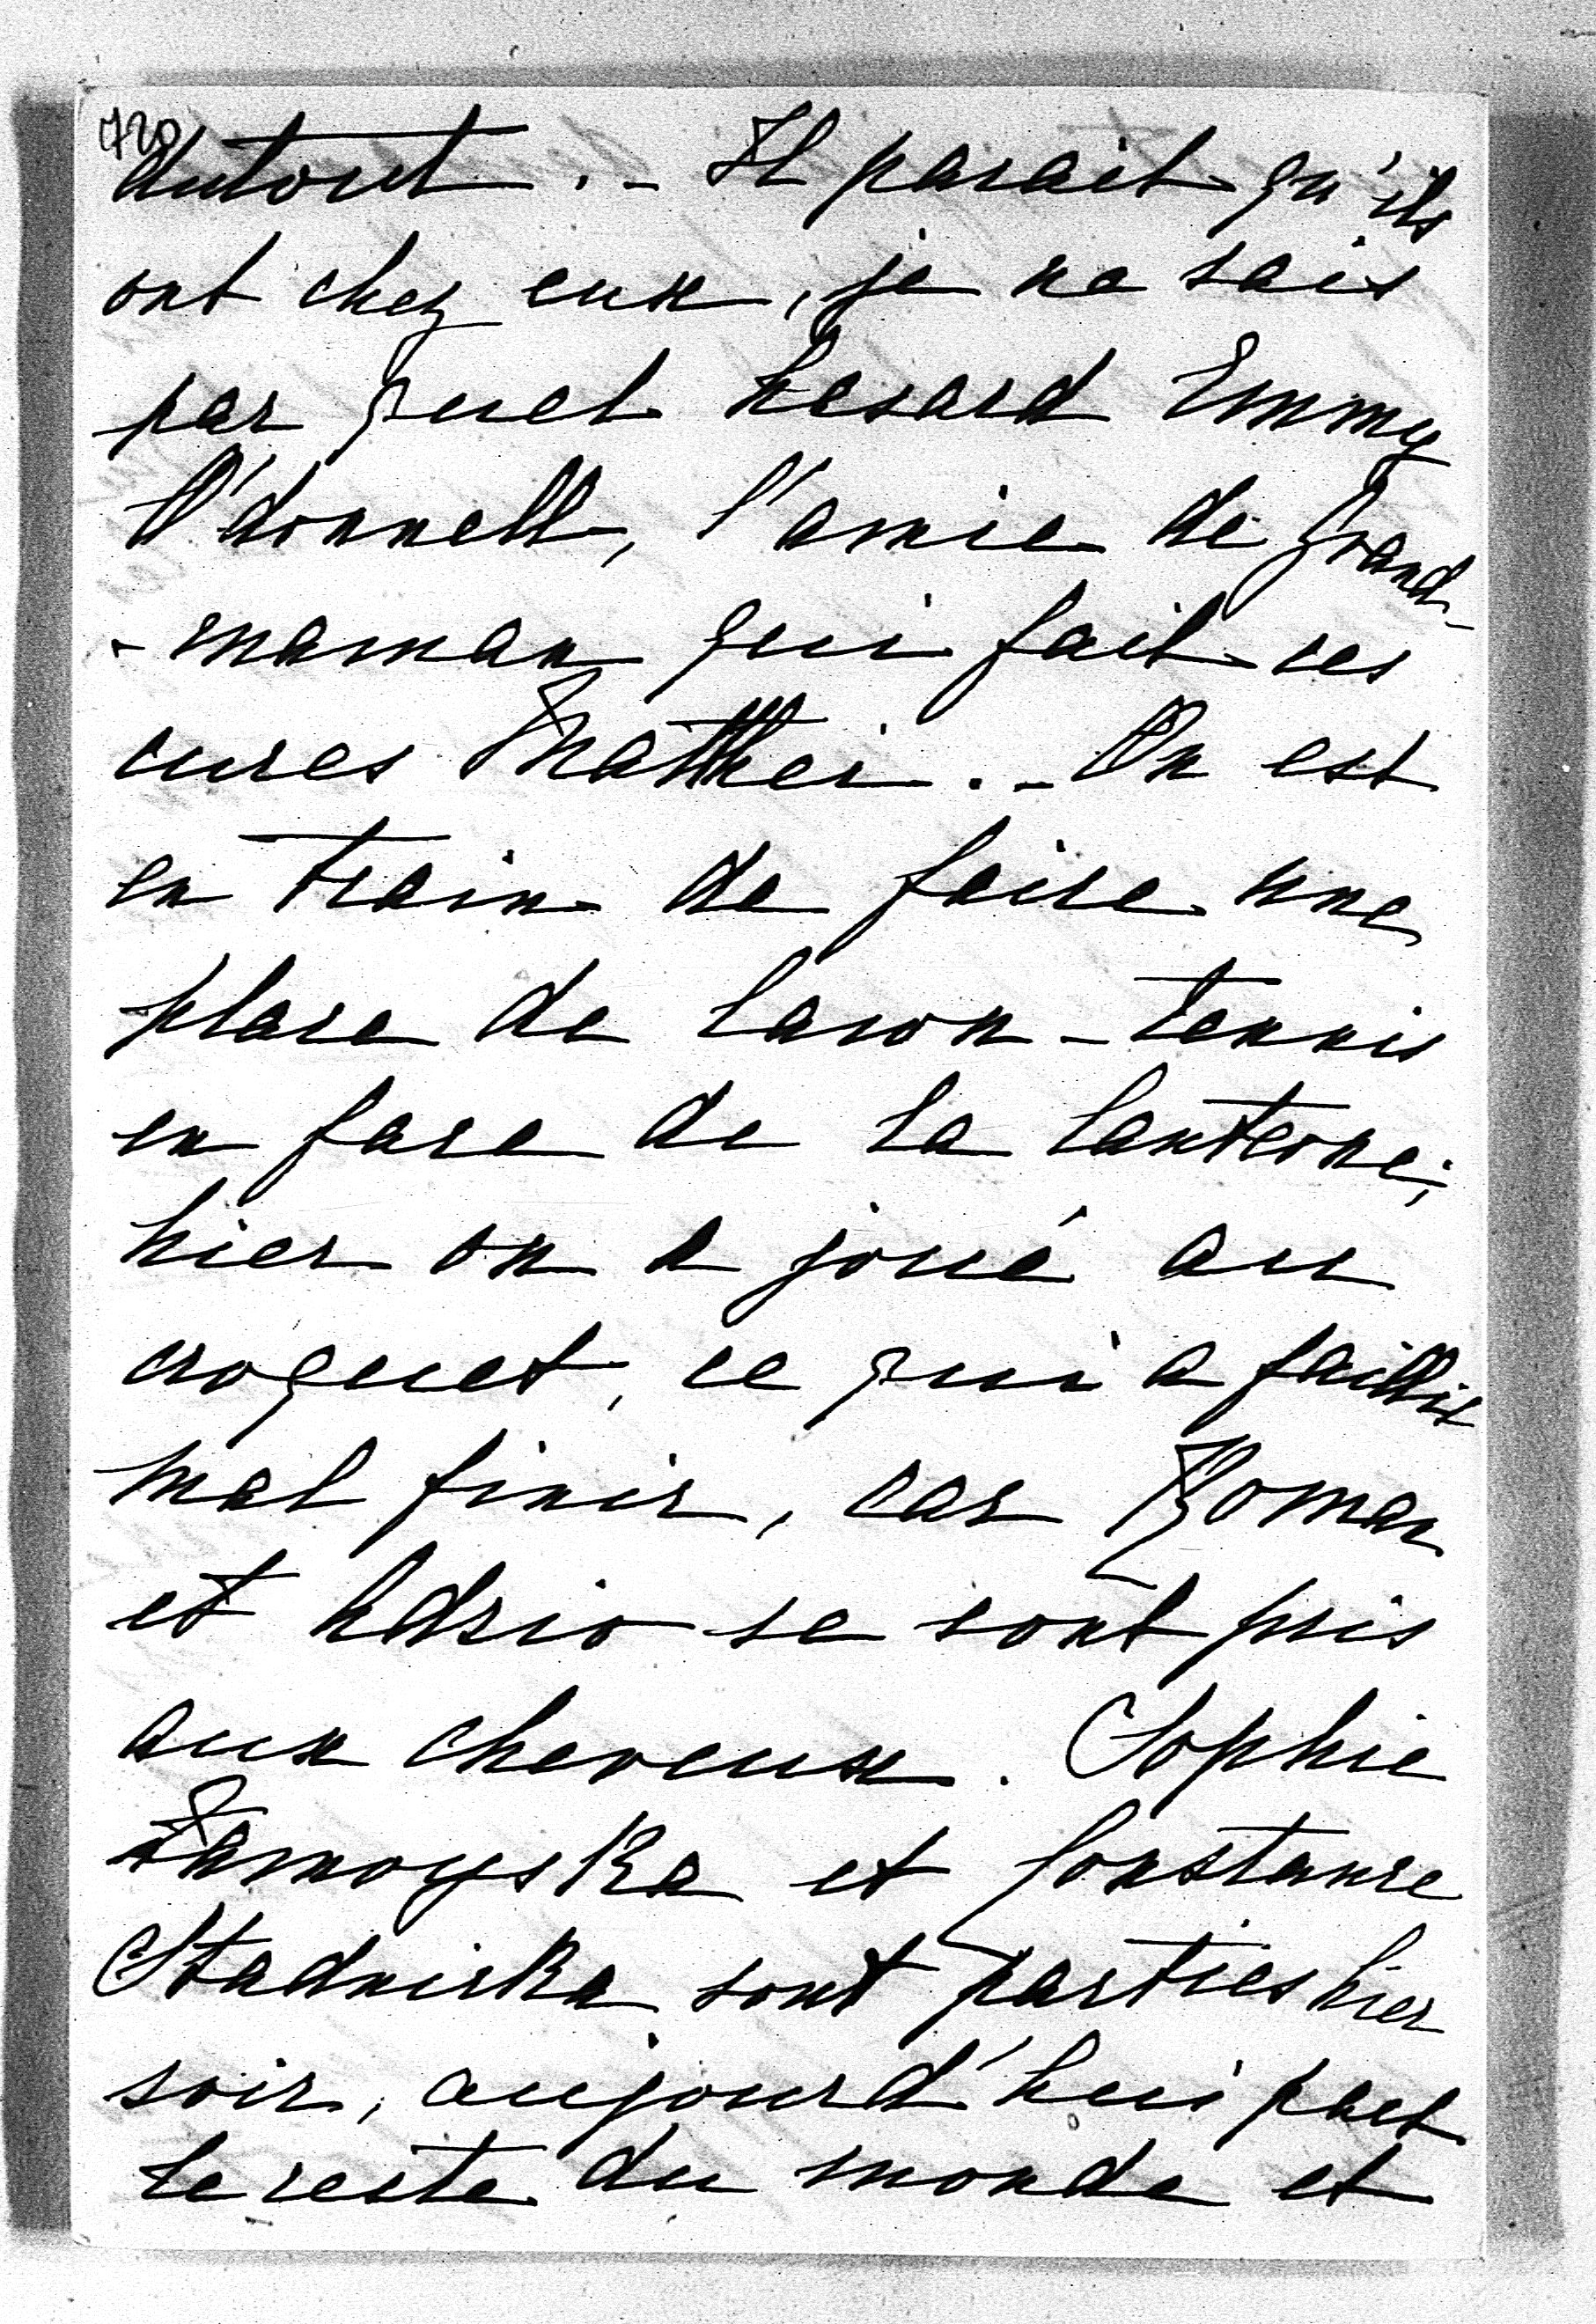 720
dutout. - Il parait qu'ils
ont chez eux, je ne sais
par quel hasard Emmy
O'donnell, l'amie de Grand-
-maman qui fait ses
cures Matthei. - On est
en train de faire une
place de lawn-tennis
en face de la lanterne;
hier on a joué au
croquet, ce qui a faillit
mal finir, car Roman
et Adzio se sont pris
aux cheveux. Sophie
Zamoyska et Constance
Stadnicka sont parties hier
soir, aujourd'hui part
le reste du monde et